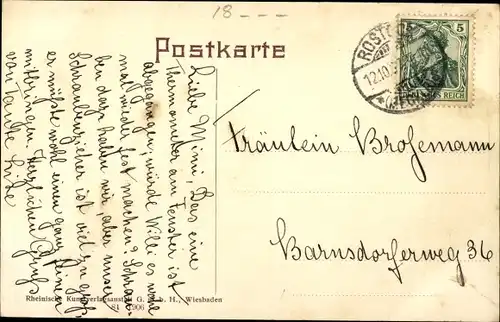 18 - - -
Postkarte
ROSTOCK
12.10.
5
DEUTSCHES REICH
Liebe Mimi, Das eine
Thermometer am Fenster ist
abgegangen, würde Willi es wohl
mal wieder fest machen? Schrau-
ben dazu haben wir aber unser
Schraubenzieher ist viel zu groß,
er müßte wohl einen ganz kleinen
mitbringen. Herzlichen Gruß
von Tante
Fräulein Brosemann
Barnsdorferweg 36
Rheinische Kunstverlagsanstalt G. m. b. H., Wiesbaden
81 1906